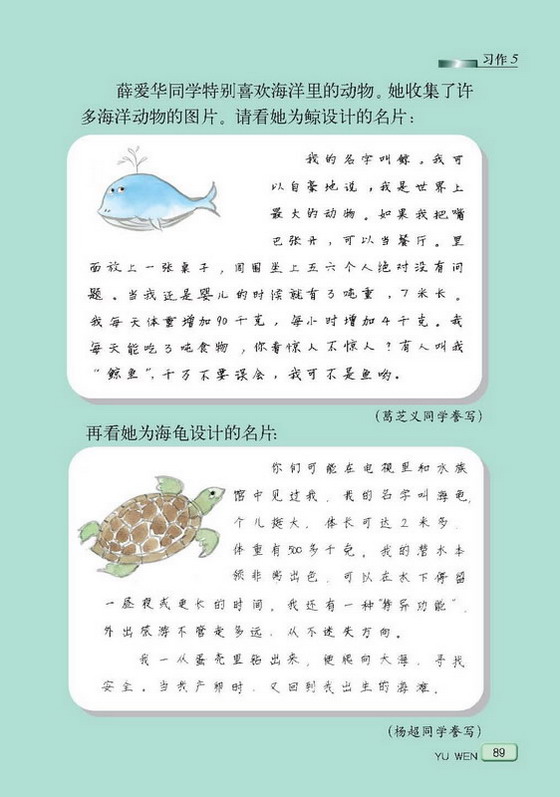 习作5
薛爱华同学特别喜欢海洋里的动物。她收集了许
多海洋动物的图片。请看她为鲸设计的名片：
我的名字叫鲸。我可
以自豪地说，我是世界上
最大的动物。如果我把嘴
巴张开，可以当餐厅。里
面放上一张桌子，周围坐上五六个人绝对没有问
题。当我还是婴儿的时候就有3吨重，7米长。
我每天体重增加90千克，每小时增加4千克。我
每天能吃3吨食物，你看惊人不惊人？有人叫我
“鲸鱼”，千万不要误会，我可不是鱼哟。
（葛芝义同学誊写）
再看她为海龟设计的名片：
你们可能在电视里和水族
馆中见过我，我的名字叫海龟，
个儿挺大，体长可达2米多，
体重有500多千克。我的潜水本
领非常出色，可以在水下停留
一昼夜或更长的时间。我还有一种“特异功能”，
外出旅游不管走多远，从不迷失方向。
我一从蛋壳里钻出来，便爬向大海，寻找
安全。当我产卵时，又回到我出生的海滩。
（杨超同学誊写）
YU WEN 89